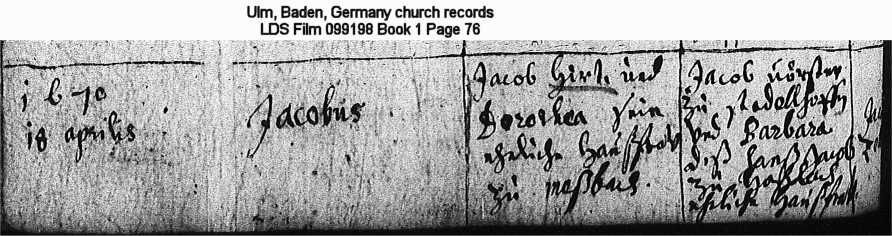 Ulm, Baden, Germany church records
LDS Film 099198 Book 1 Page 76
1670
18 aprilis
Jacobus
Jacob Hirt und
Dorothea sein
eheliche Haußfraw
zu maßbach.
Jacob
zu
und Barbara
deß Hanß Jacob
zu
eheliche Haußfraw